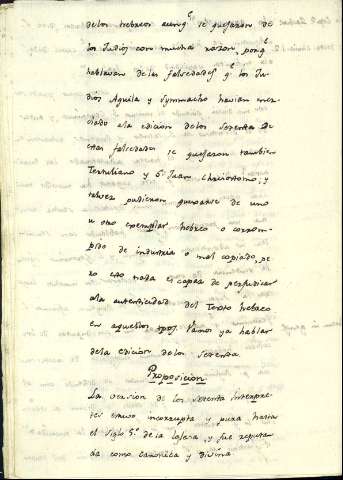 delos Hebreos aunq.e se quejaron de
los Judios con mucha razon porq.e
hablavan de las falsedades q.e los Ju-
dios Aquila y Symmacho havian mez-
clado ala edicion delos setenta. De
estas falsedades se quejaron tambien
Tertuliano y S.n Juan Chrisostomo, y
talvez pudieron quejarse de uno
u otro exemplar hebreo o corrom-
pido de industria o mal copiado, pe-
ro esto nada es capaz de perjudicar
ala autenticidad del Texto hebreo
en aquellos tpos. Vamos ya hablar
dela edicion delos setenta.
Proposicion
La version de los setenta Interpre-
tes estuvo incorrupta y pura hasta
el siglo 3.o de la Iglesia, y fue reputa-
da como canonica y divina